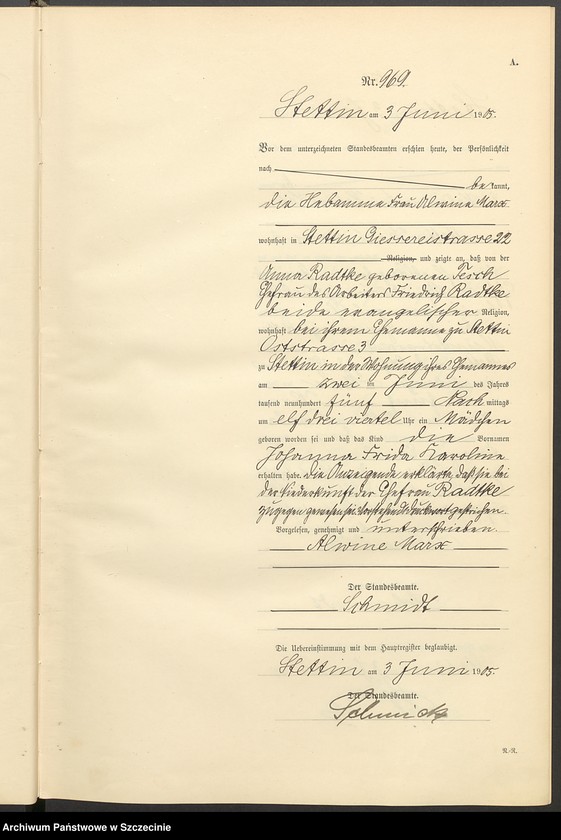 A.
Nr. 969.
Stettin am 3 Juni 1905.
Vor dem unterzeichneten Standesbeamten erschien heute, der Persönlichkeit
nach
be kannt,
die Hebamme Frau Alwine Marx
wohnhaft in Stettin Giessereistrasse 22
Religion, und zeigte an, daß von der
Anna Radtke geborenen Tesch
Ehefrau des Arbeiters Friedrich Radtke
beide evangelischer Religion,
wohnhaft bei ihrem Ehemanne zu Stettin
Oststrasse 3
zu Stettin in der Wohnung ihres Ehemannes
am zwei ten Juni des Jahres
tausend neunhundert fünf Nach mittags
um elf drei viertel Uhr ein Mädchen
geboren worden sei und daß das Kind die Vornamen
Johanna Frida Karoline
erhalten habe. Die Anzeigende erklärte, daß sie bei
der Niederkunft der Ehefrau Radtke
zugegen gewesen sei. Vorstehend 1 Druckwort gestrichen.
Vorgelesen, genehmigt und unterschrieben.
Alwine Marx
Der Standesbeamte.
Schmidt
Die Uebereinstimmung mit dem Hauptregister beglaubigt.
Stettin am 3 Juni 1905.
Der Standesbeamte.
Schmidt
R.-R.
Archiwum Państwowe w Szczecinie